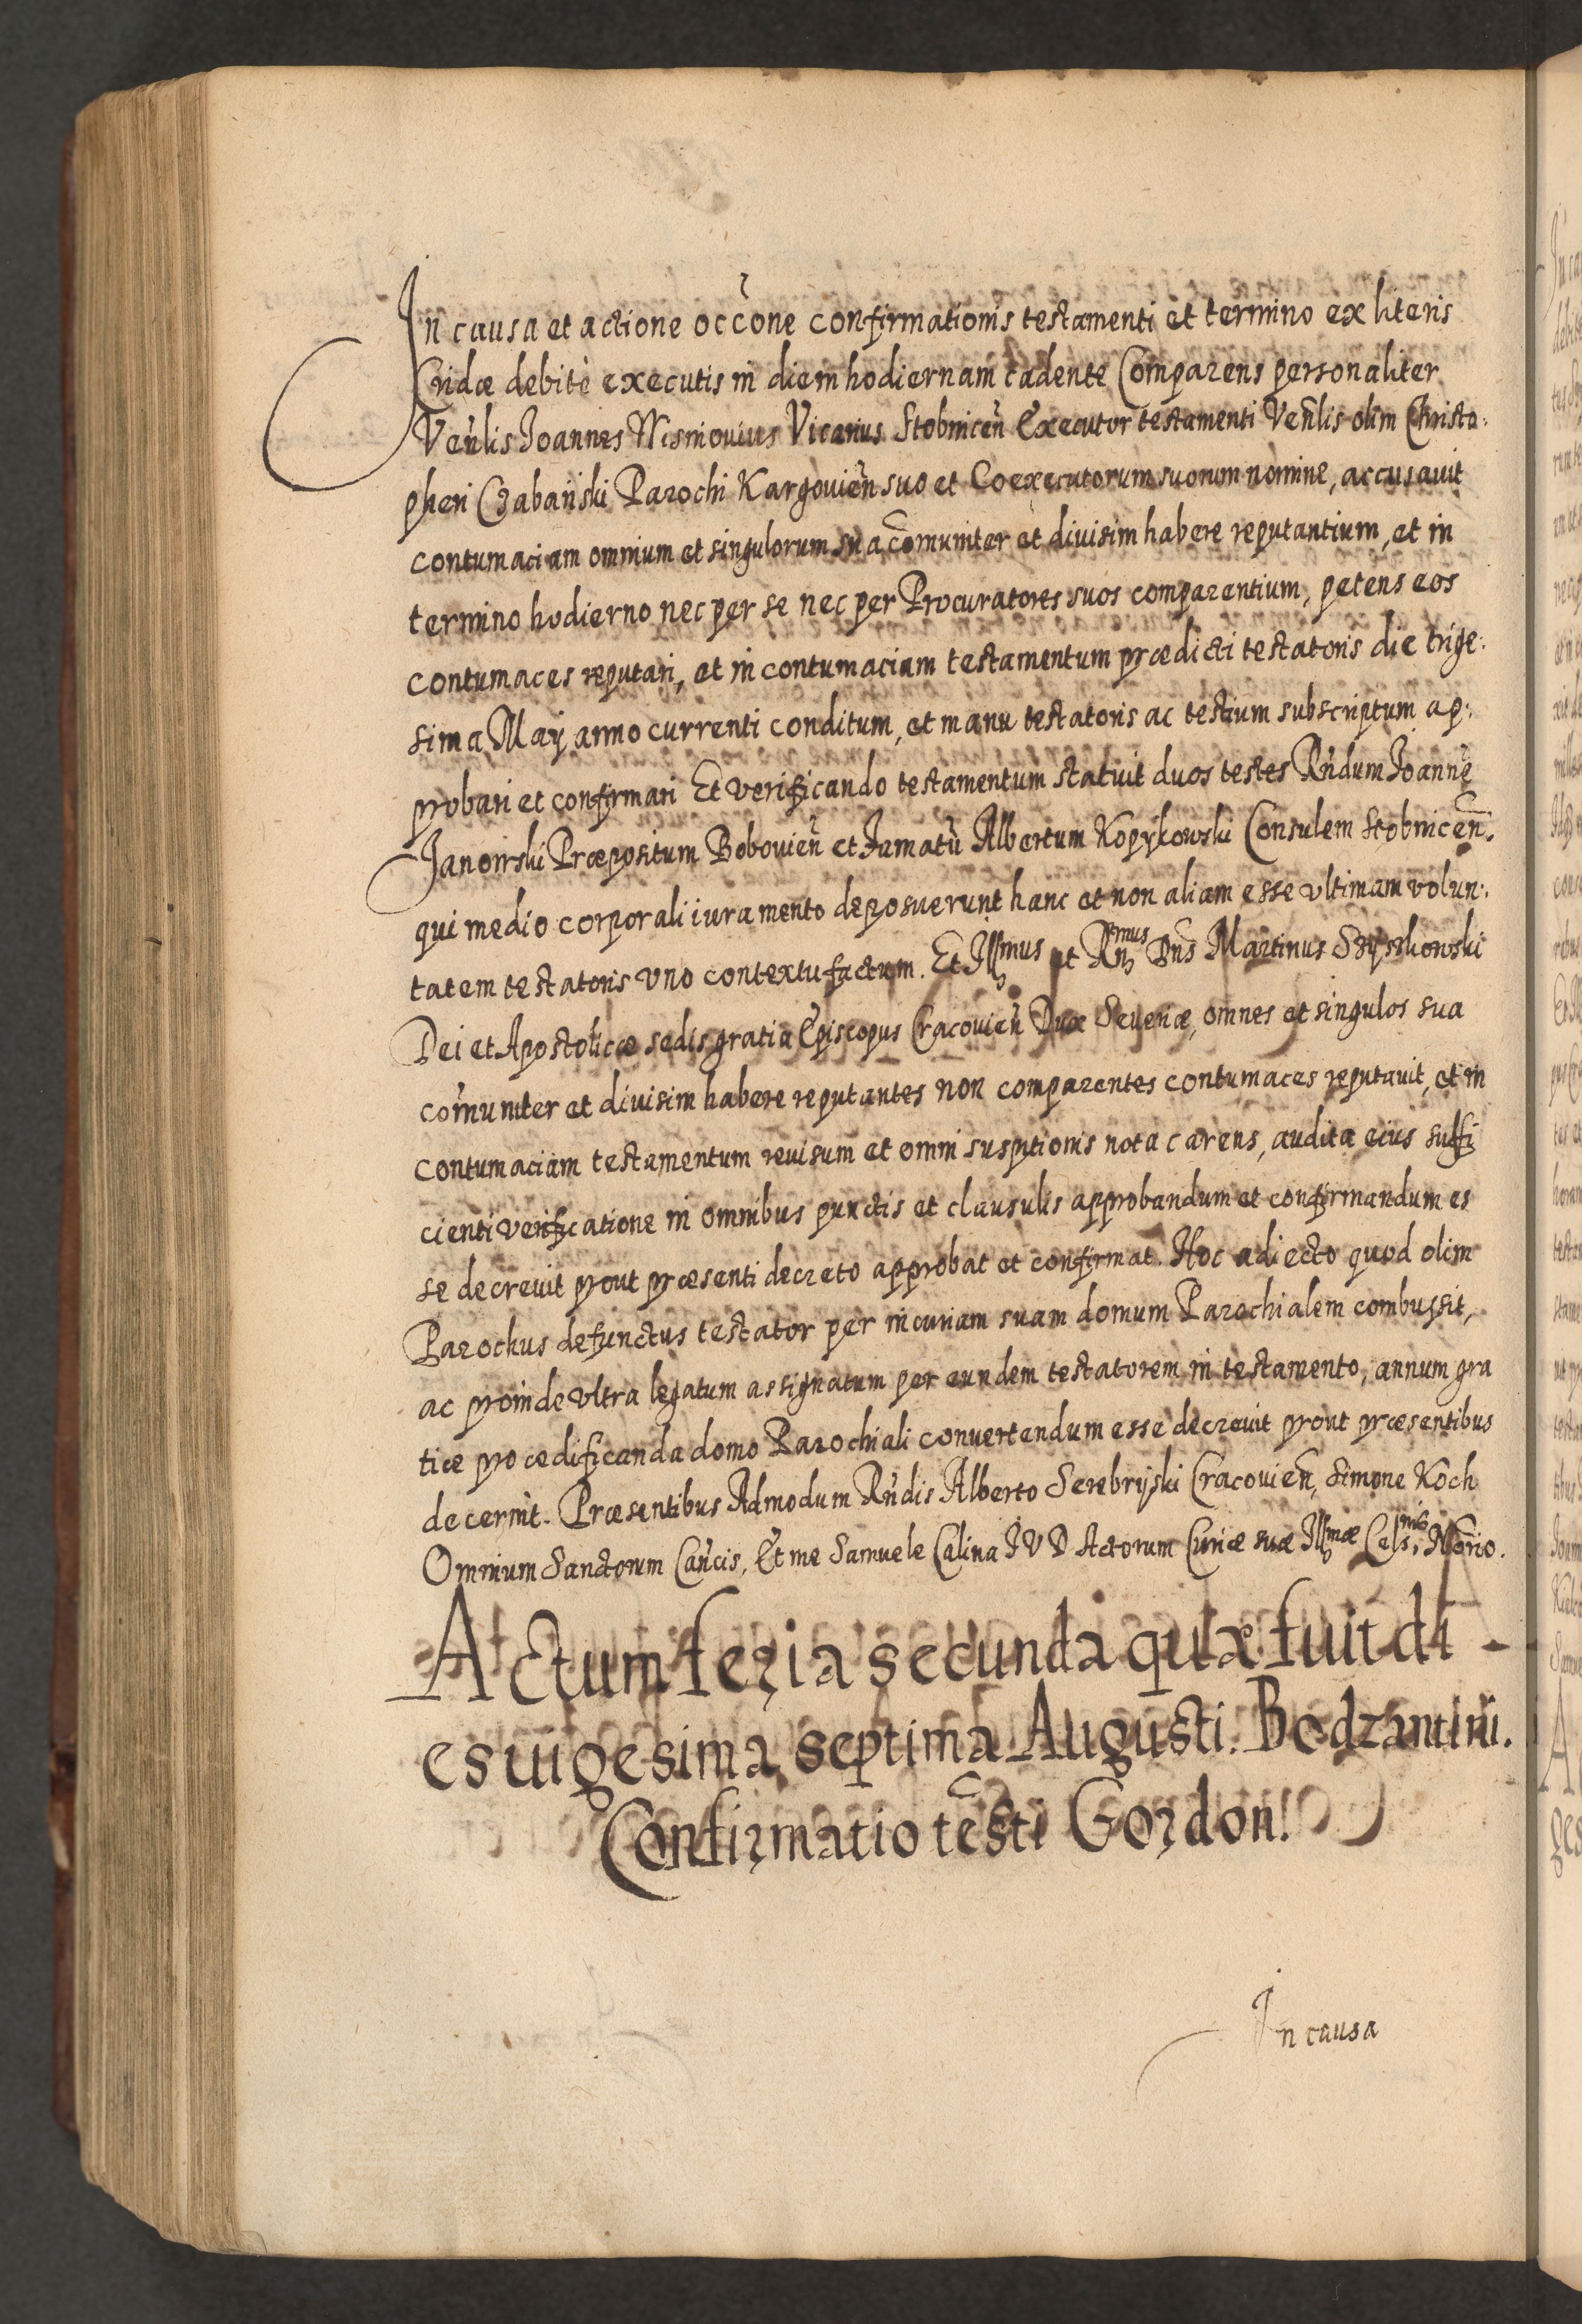 In causa et actione occōne confirmationis testamenti et termino ex literis
Cridæ debitè executis in diem hodiernam cadente Comparens personaliter
Veñlis Joannes Wisniouius Vicarius Stobniceñ Executor testamenti Veñlis olim Christo:
pheri Czabański Parochi Kargouieñ suo et Coexecutorum suorum nomine, accusauit
contumaciam omnium et singulorum sua com̄uniter et diuisim habere reputantium, et in
termino hodierno nec per se nec per Procuratores suos comparentium, petens eos
contumaces reputari, et in contumaciam testamentum prædicti testatoris die trige:
sima Maij anno currenti conditum, et manu testatoris ac testium subscriptum ap:
probari et confirmari Et verificando testamentum statuit duos testes Rñdum Joannē
Janoirski Præpositum Bobouieñ et Famatū Albertum Kopÿkowski Consulem Stobniceñ.
qui medio corporali iuramento deposuerunt hanc et non aliam esse vltimam volun:
tatem testatoris vno contextu factum. Et Illmus et Rmus Dñs Martinus Szÿszkowski
Dei et Apostolicæ sedis gratia Episcopus Cracouieñ Dux Seueriæ, omnes et singulos sua
com̄uniter et diuisim habere reputantes non comparentes contumaces reputauit, et in
contumaciam testamentum reuisum et omni susptionis nota carens, audita eius suffi
cienti verificatione in omnibus punctis et clausulis approbandum et confirmandum es
se decreuit prout præsenti decreto approbat et confirmat. Hoc adiecto quod olim
Parochus defunctus testator per incuriam suam domum Parochialem combussit,
ac proinde vltra legatum assignatum per eundem testatorem in testamento, annum gra
tiæ pro ædificanda domo Parochiali conuertendum esse decreuit prout præsentibus
decernit. Præsentibus Admodum Rñdis Alberto Serebryski Cracouieñ, Simone Koch
Omnium Sanctorum Cañcis, Et me Samuele Calina J V D Actorum Curiæ suæ Illmæ Celsnis Nōrio.
Actum feria secunda quæ fuit di
es uigesima septima Augusti. Bodzantini.
Confirmatio tēsti Gordon!
In causa